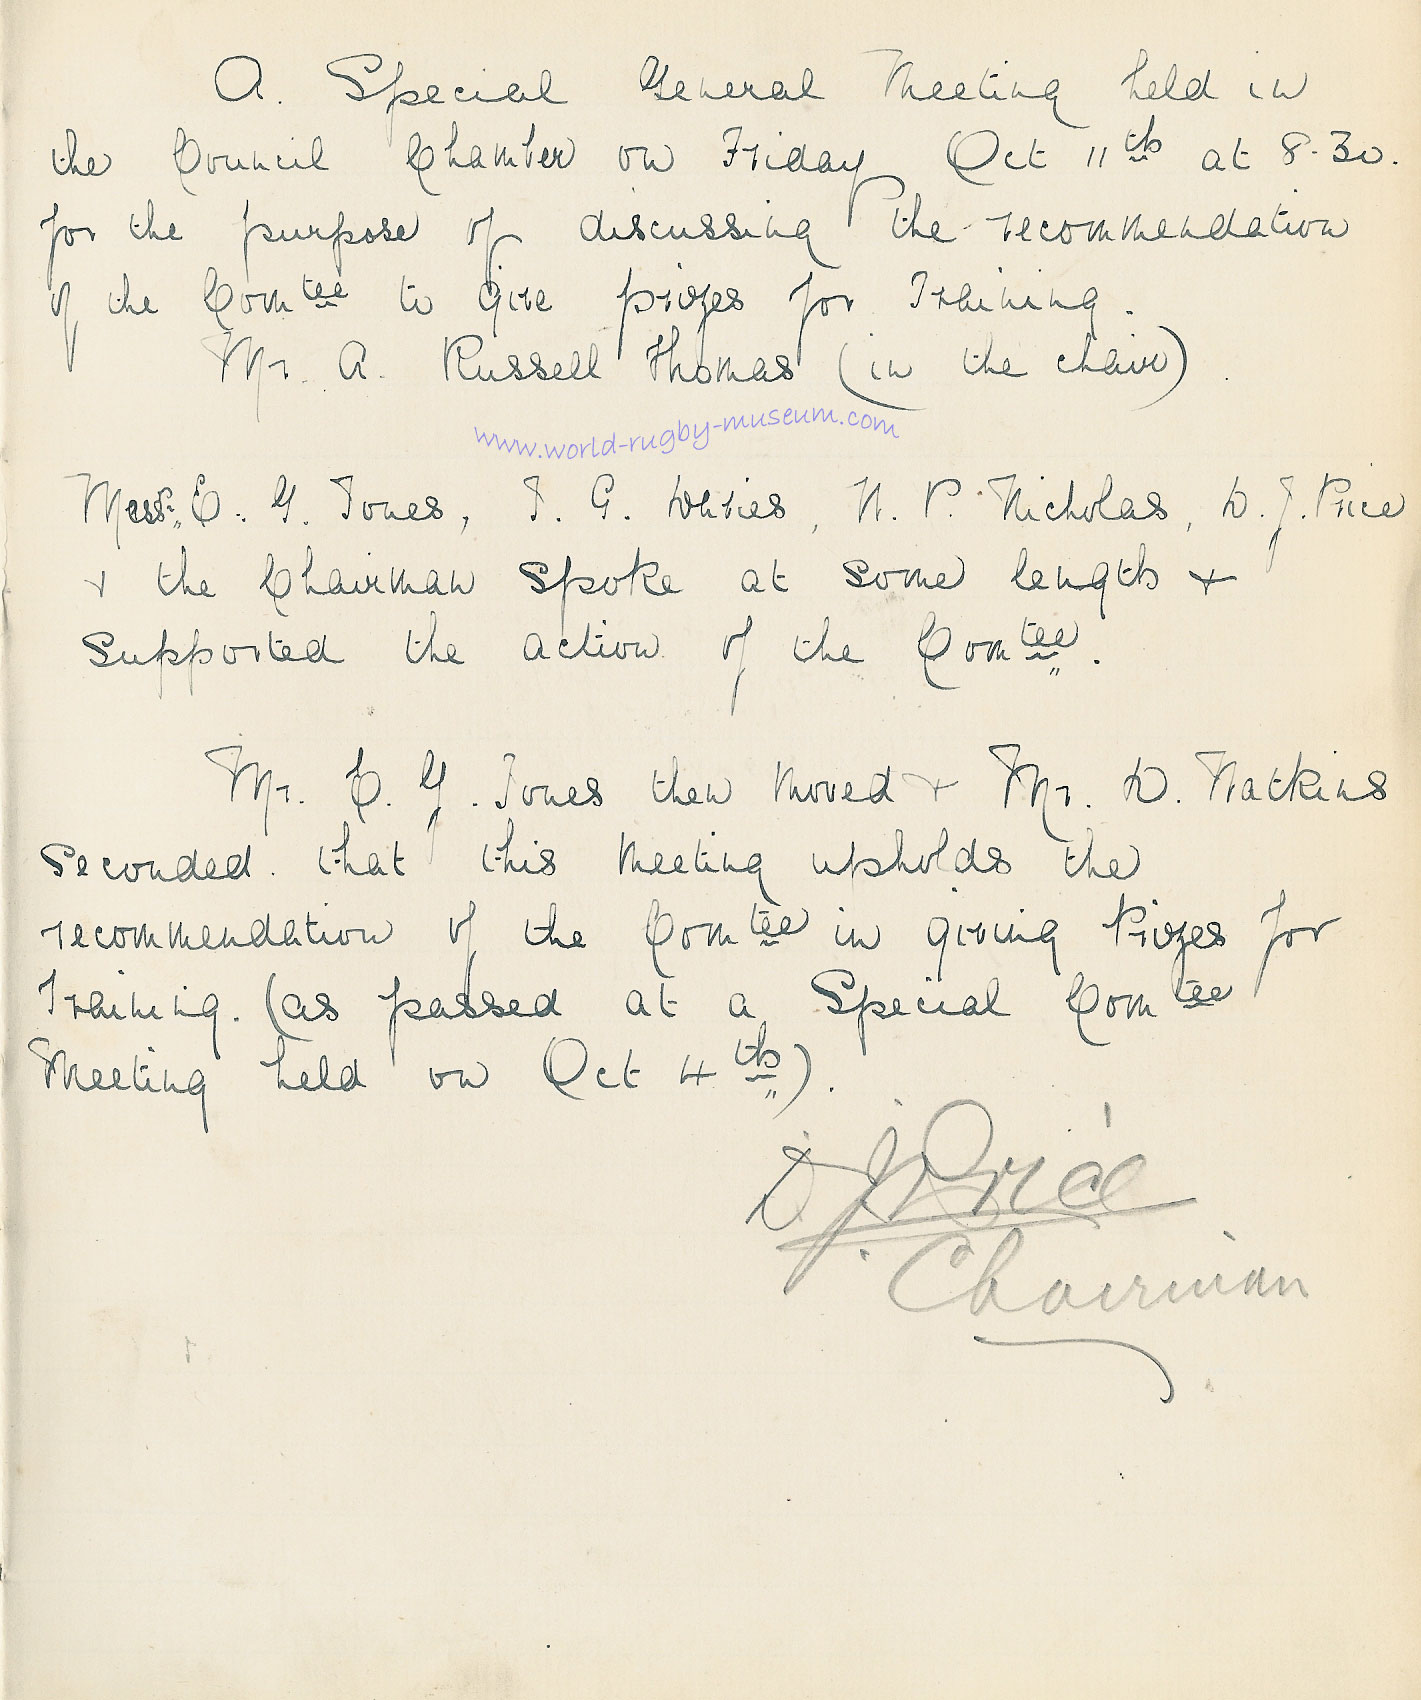 A. Special General Meeting held in
the Council Chamber on Friday Oct 11th at 8.30.
for the purpose of discussing the recommendation
of the Comtee to give prizes for Training.
Mr. A. Russell Thomas (in the chair)
www.world-rugby-museum.com
Messrs. E. G. Jones, T. G. W. P. Nicholas, D. J. Price
+ the Chairman spoke at some length +
supported the action of the Comtee.
Mr. E. G. Jones then moved + Mr. D. Watkins
seconded. that this meeting upholds the
recommendation of the Comtee in giving Prizes for
Training. (as passed at a Special Comtee
Meeting held on Oct 4th).
D J Price
Chairman